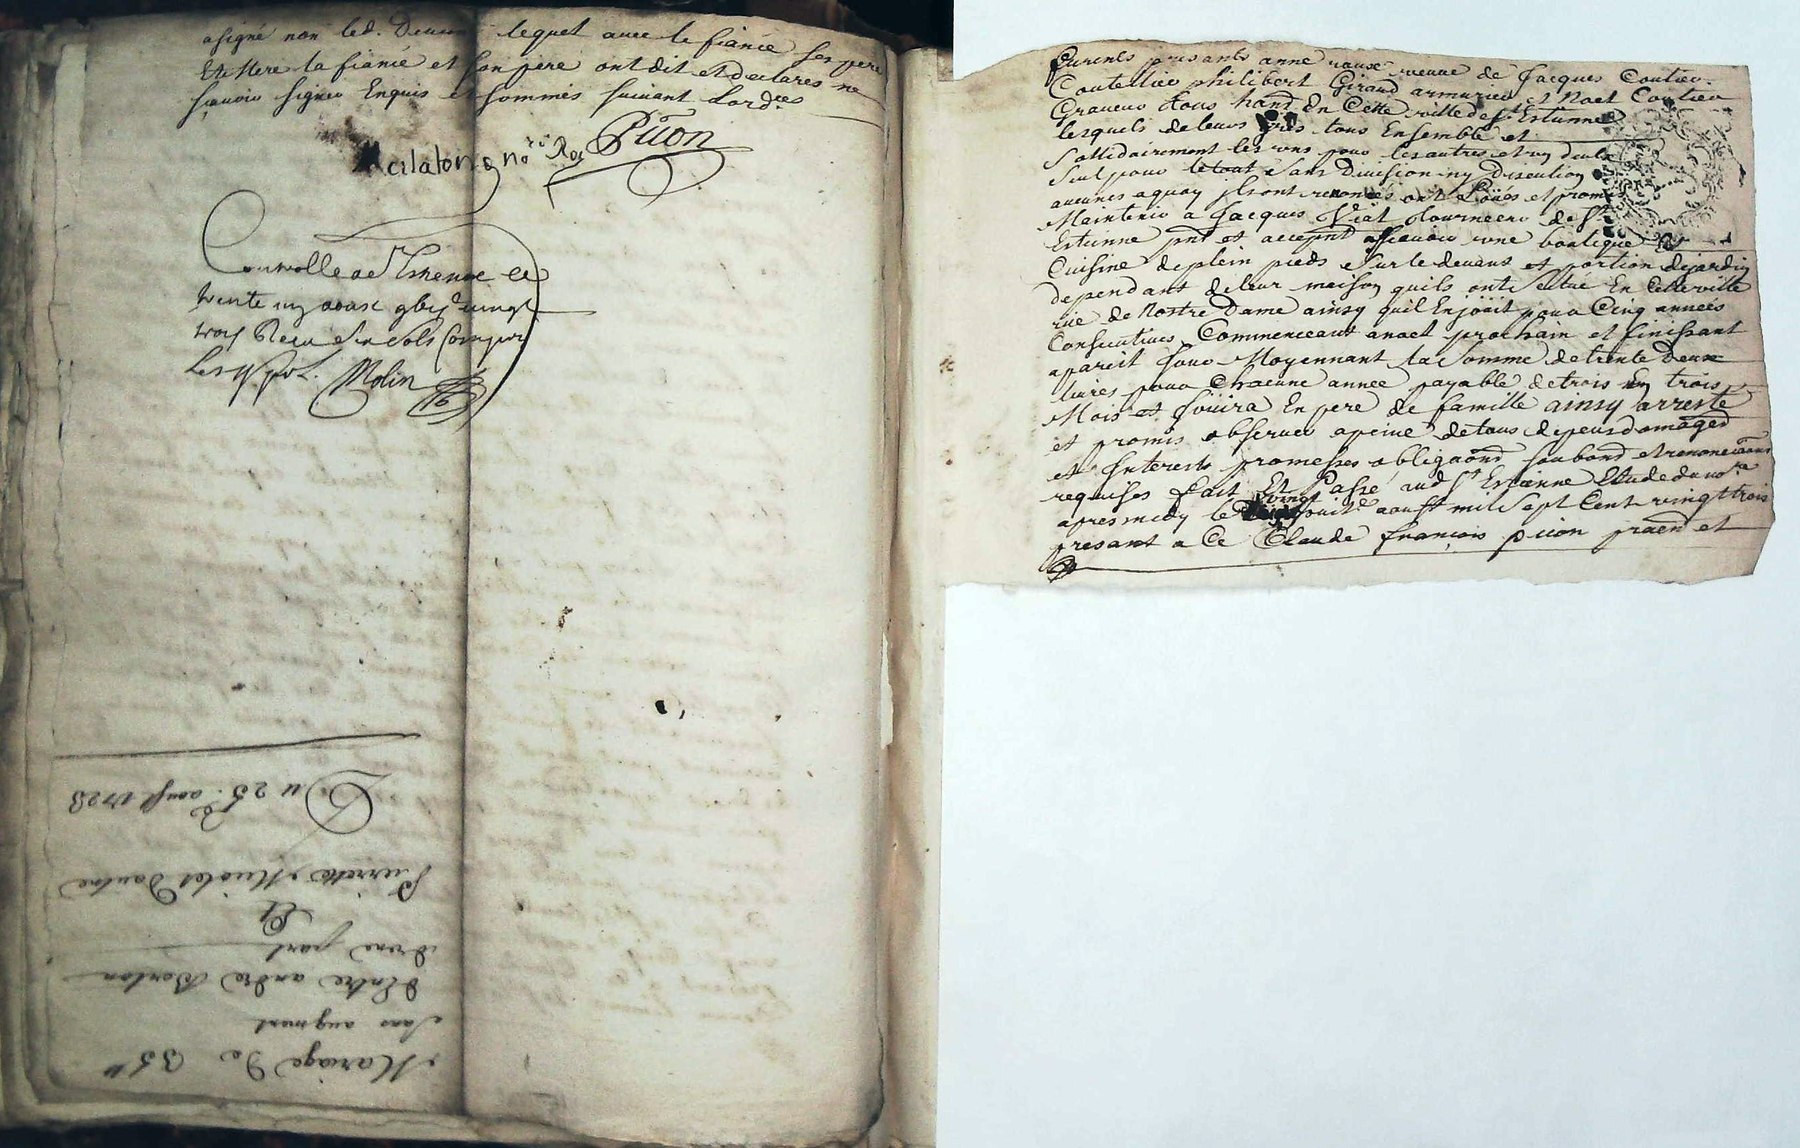 a signé non led. lequel avec le fiancé ses pere
Et Mere la fiancée et son pere ont dit et declarés ne
scavoir signer Enquis et sommés suivant L'ord.ces
no.re Roi Picon
Controllé a St Etienne le
trente un aoust gbij.c vingt
trois Receu six sols
Molin
furents presants anne veuve de Jacques Coutier
Coutellier philibert Giraud armurier et Noel Coutier
Graveur tous hand. en Cette ville de St Estienne
lesquels de leurs grés tous Ensemble et
Sollidairement les uns pour les autres et un deulx
Seul pour le tout Sans Division ny Discution
aucunes a quoy ils ont renoncés ont Loüés et promis
Maintenir a Jacques Viat tourneur de St
Estienne pnt et acceptnt assavoir une boutique et
Cuisine de plein pieds Sur le devant et portion de jardin
dependant de leur maison quils ont Située En Cette ville
rüe de Nostre Dame ainsy quil En joüit pour Cinq années
Consecutives Commenceant a noel prochain et finissant
a pareil jour Moyennant la Somme de trente Deux
livres pour Chacune année payable de trois En trois
Mois et joüira En pere de famille ainsy arresté
et promis observer a peine de tous depens domages
et Interests promesses obliga.ons soub.ons et renonciaons
requises fait Et Passé aud St Estienne Etude du no.re
apres midy le vingt huit.e aoust mil Sept Cent vingt trois
presant a Ce Claude françois picon praēn et
Du 25.e aoust 1723
Pierrette Miolet Dautre
Et
d'une part
Entre andré Berlon
Sans augment
Mariage De 35ll